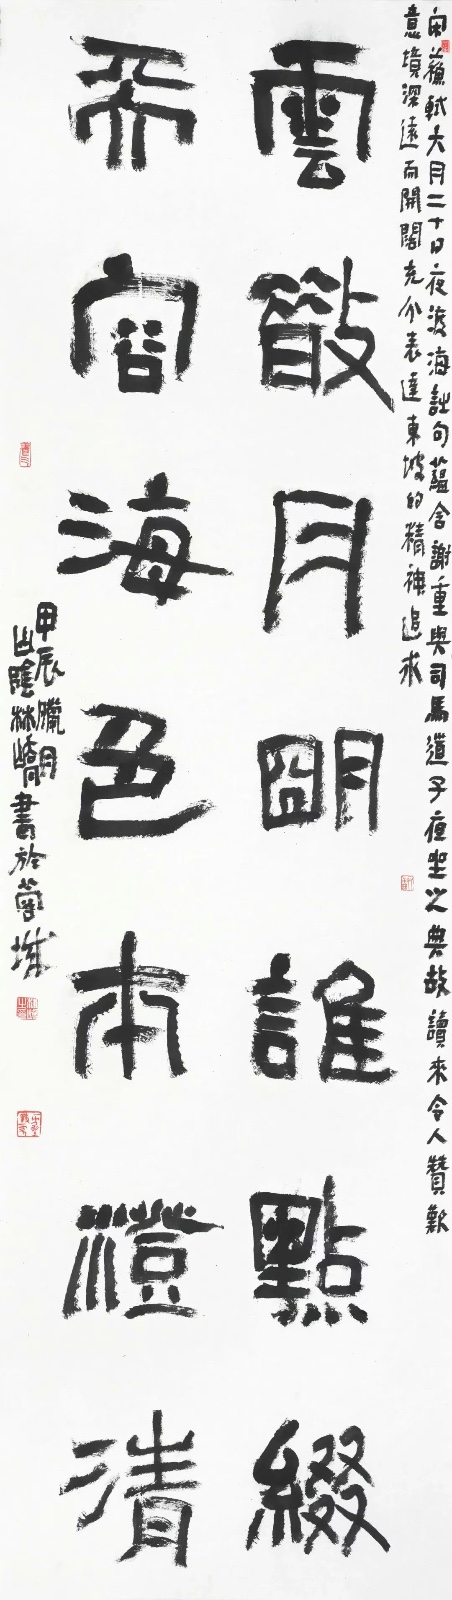 宋蘇軾六月二十日夜渡海詩句蘊含謝重與司馬道子夜坐之典故讀來令人贊歎
意境深遠而開闊充分表達東坡的精神追求
雲散月明誰點綴
天容海色本澄清
甲辰臘月
山陰林嶠書於蘭城